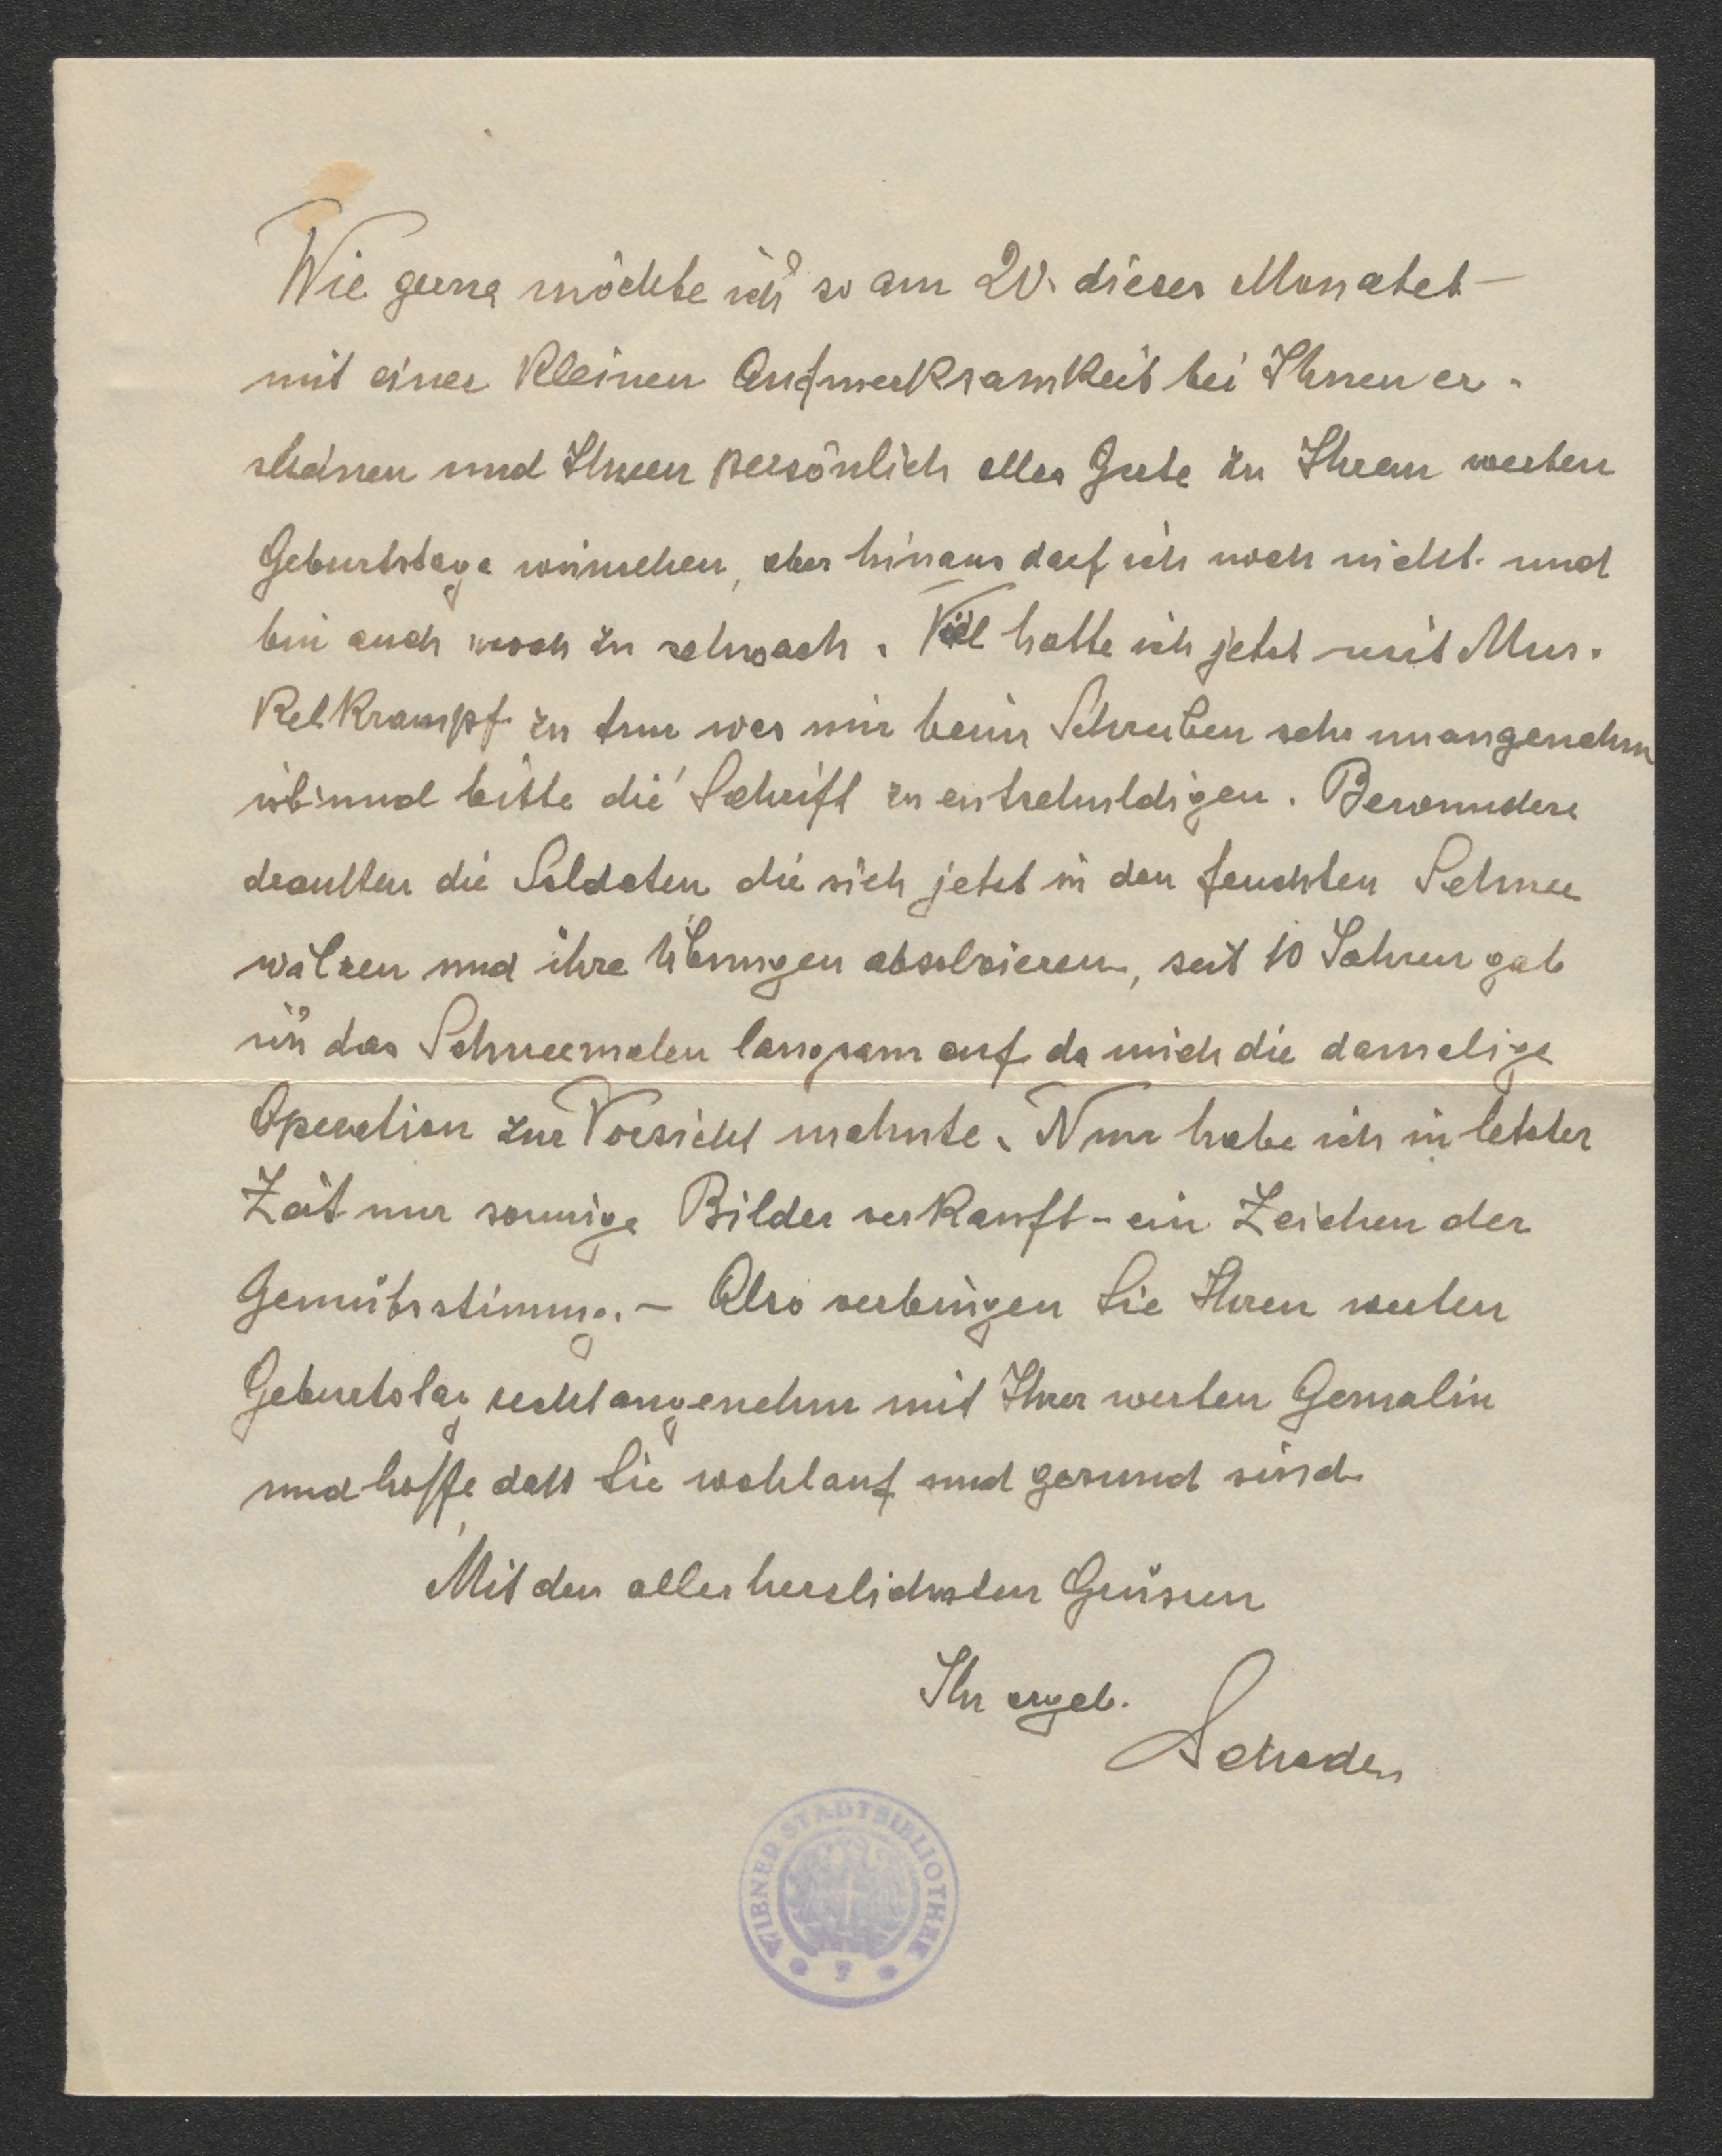 Wie gerne möchte ich so am 20. dieses Monates –
mit einer kleinen Aufmerksamkeit bei Ihnen er-
scheinen und Ihnen persönlich alles Gute zu Ihrem werten
Geburtstage wünschen, aber hinaus darf ich noch nicht und
bin auch noch zu schwach. Viel hatte ich jetzt mit Mus-
kelkrampf zu tun was mir beim Schreiben sehr unangenehm
ist und bitte die Schrift zu entschuldigen. Bewundere
draußen die Soldaten die sich jetzt in den feuchten Schnee
wälzen und ihre Übungen absolvieren, seit 10 Jahren gab
ich das Schneemalen langsam auf da mich die damalige
Operation zur Vorsicht mahnte. Nun habe ich in letzter
Zeit nur sonnige Bilder verkauft – ein Zeichen der
Gemütsstimmung. – Also verbringen Sie Ihren werten
Geburtstag recht angenehm mit Ihrer werten Gemalin
und hoffe daß Sie wohlauf und gesund sind
Mit den allerherzlichsten Grüssen
Ihr ergeb.
Schaden
WIENER STADTBIBLIOTHEK
7